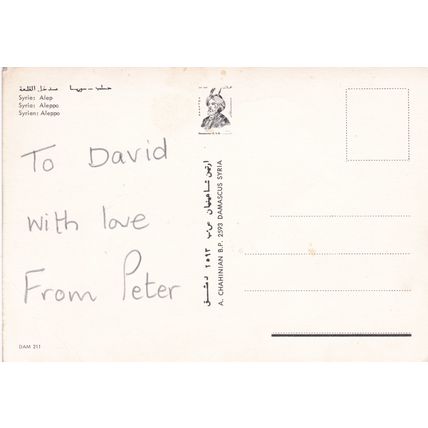 حلب - سوريا مدخل القلعة
Syrie: Alep
Syria: Aleppo
Syrien: Aleppo
To David
with love
From Peter
DAM 211
ارتين شاهينيان ص.ب ٢٥٩٣ دمشق
A. CHAHINIAN B.P. 2593 DAMASCUS SYRIA